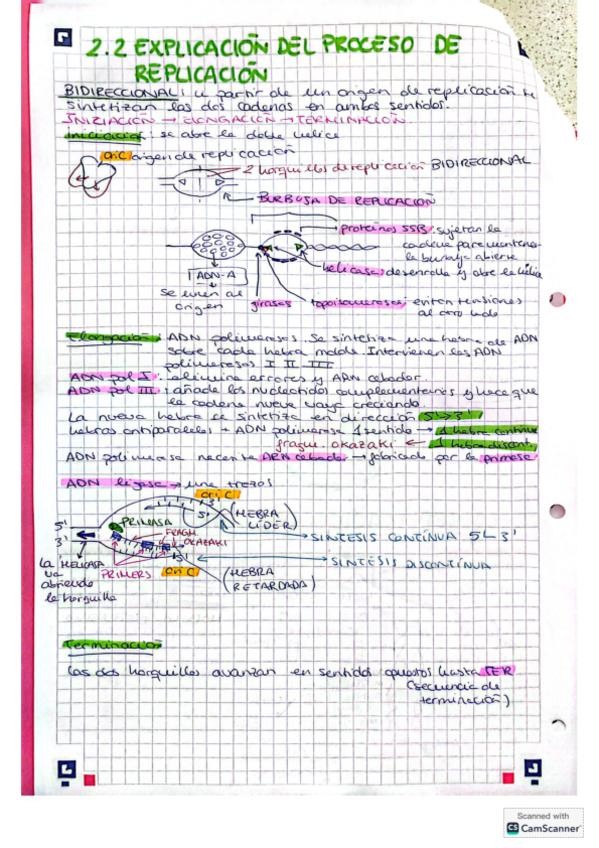 2.2 EXPLICACIÓN DEL PROCESO DE
REPLICACIÓN
BIDIRECCIONAL: a partir de un origen de replicación se
sintetizan las dos cadenas en ambos sentidos.
INICIACIÓN → ELONGACIÓN → TERMINACIÓN
iniciación: se abre la doble hélice
oriC origen de replicación
2 horquillas de replicación BIDIRECCIONAL
BURBUJA DE REPLICACIÓN
proteínas SSB: sujetan la
cadena para mantener
la burbuja abierta
helicasa: desenrolla y abre la hélice
ADN-A
se unen al
origen
girasas
topoisomerasas: evitan tensiones
al otro lado
Elongación: ADN polimerasas. Se sintetiza una hebra de ADN
sobre cada hebra molde. Intervienen las ADN
polimerasas I II III
ADN pol I: elimina errores y ARN cebador
ADN pol III: añade los nucleótidos complementarios y hace que
la cadena nueva vaya creciendo
La nueva hebra se sintetiza en dirección 5'→3'
hebras antiparalelas + ADN polimerasa 1 sentido → 1 hebra continua
fragm. okazaki ← 1 hebra discont.
ADN polimerasa necesita ARN cebador → fabricado por la primasa
ADN ligasa → une trozos
ori C
3'
5'
(HEBRA
LÍDER)
PRIMASA
5'
3'
FRAGM.
OKAZAKI
SINTESIS CONTÍNUA 5' 3'
SINTESIS DISCONTÍNUA
5'
La HELICASA
va
abriendo
la horquilla
PRIMERS
Ori C
(HEBRA
RETARDADA)
Terminación
Las dos horquillas avanzan en sentidos opuestos hasta TER
(secuencia de
terminación)
Scanned with
CS CamScanner